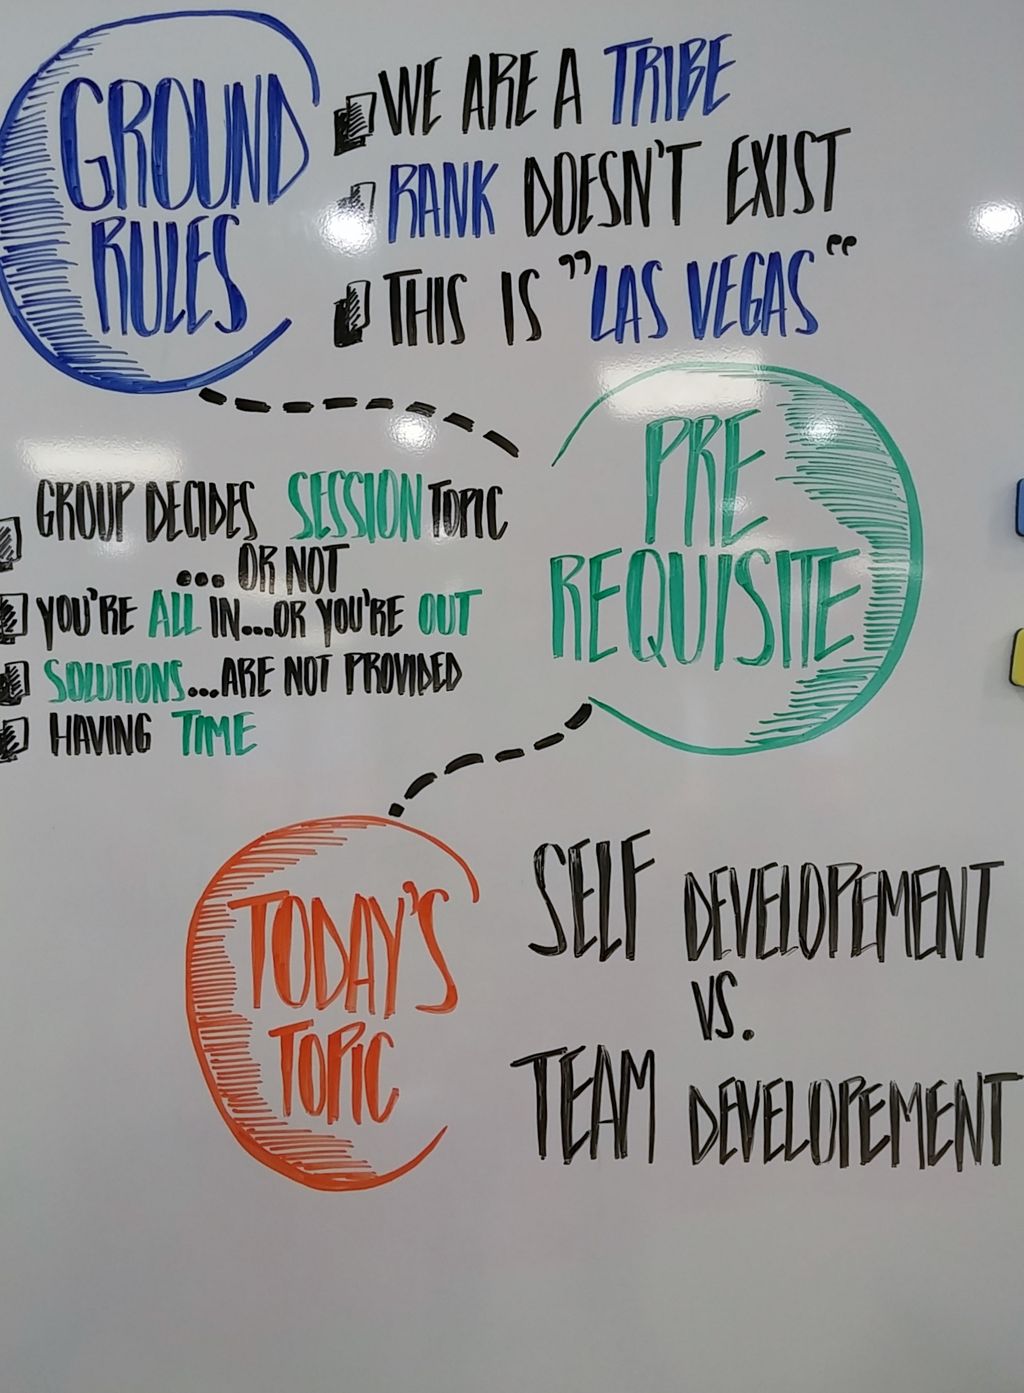 GROUND
RULES
WE ARE A TRIBE
RANK DOESN'T EXIST
THIS IS "LAS VEGAS"
PRE
REQUISITE
GROUP DECIDES SESSION TOPIC
... OR NOT
YOU'RE ALL IN...OR YOU'RE OUT
SOLUTIONS...ARE NOT PROVIDED
HAVING TIME
TODAY'S
TOPIC
SELF DEVELOPEMENT
VS.
TEAM DEVELOPEMENT